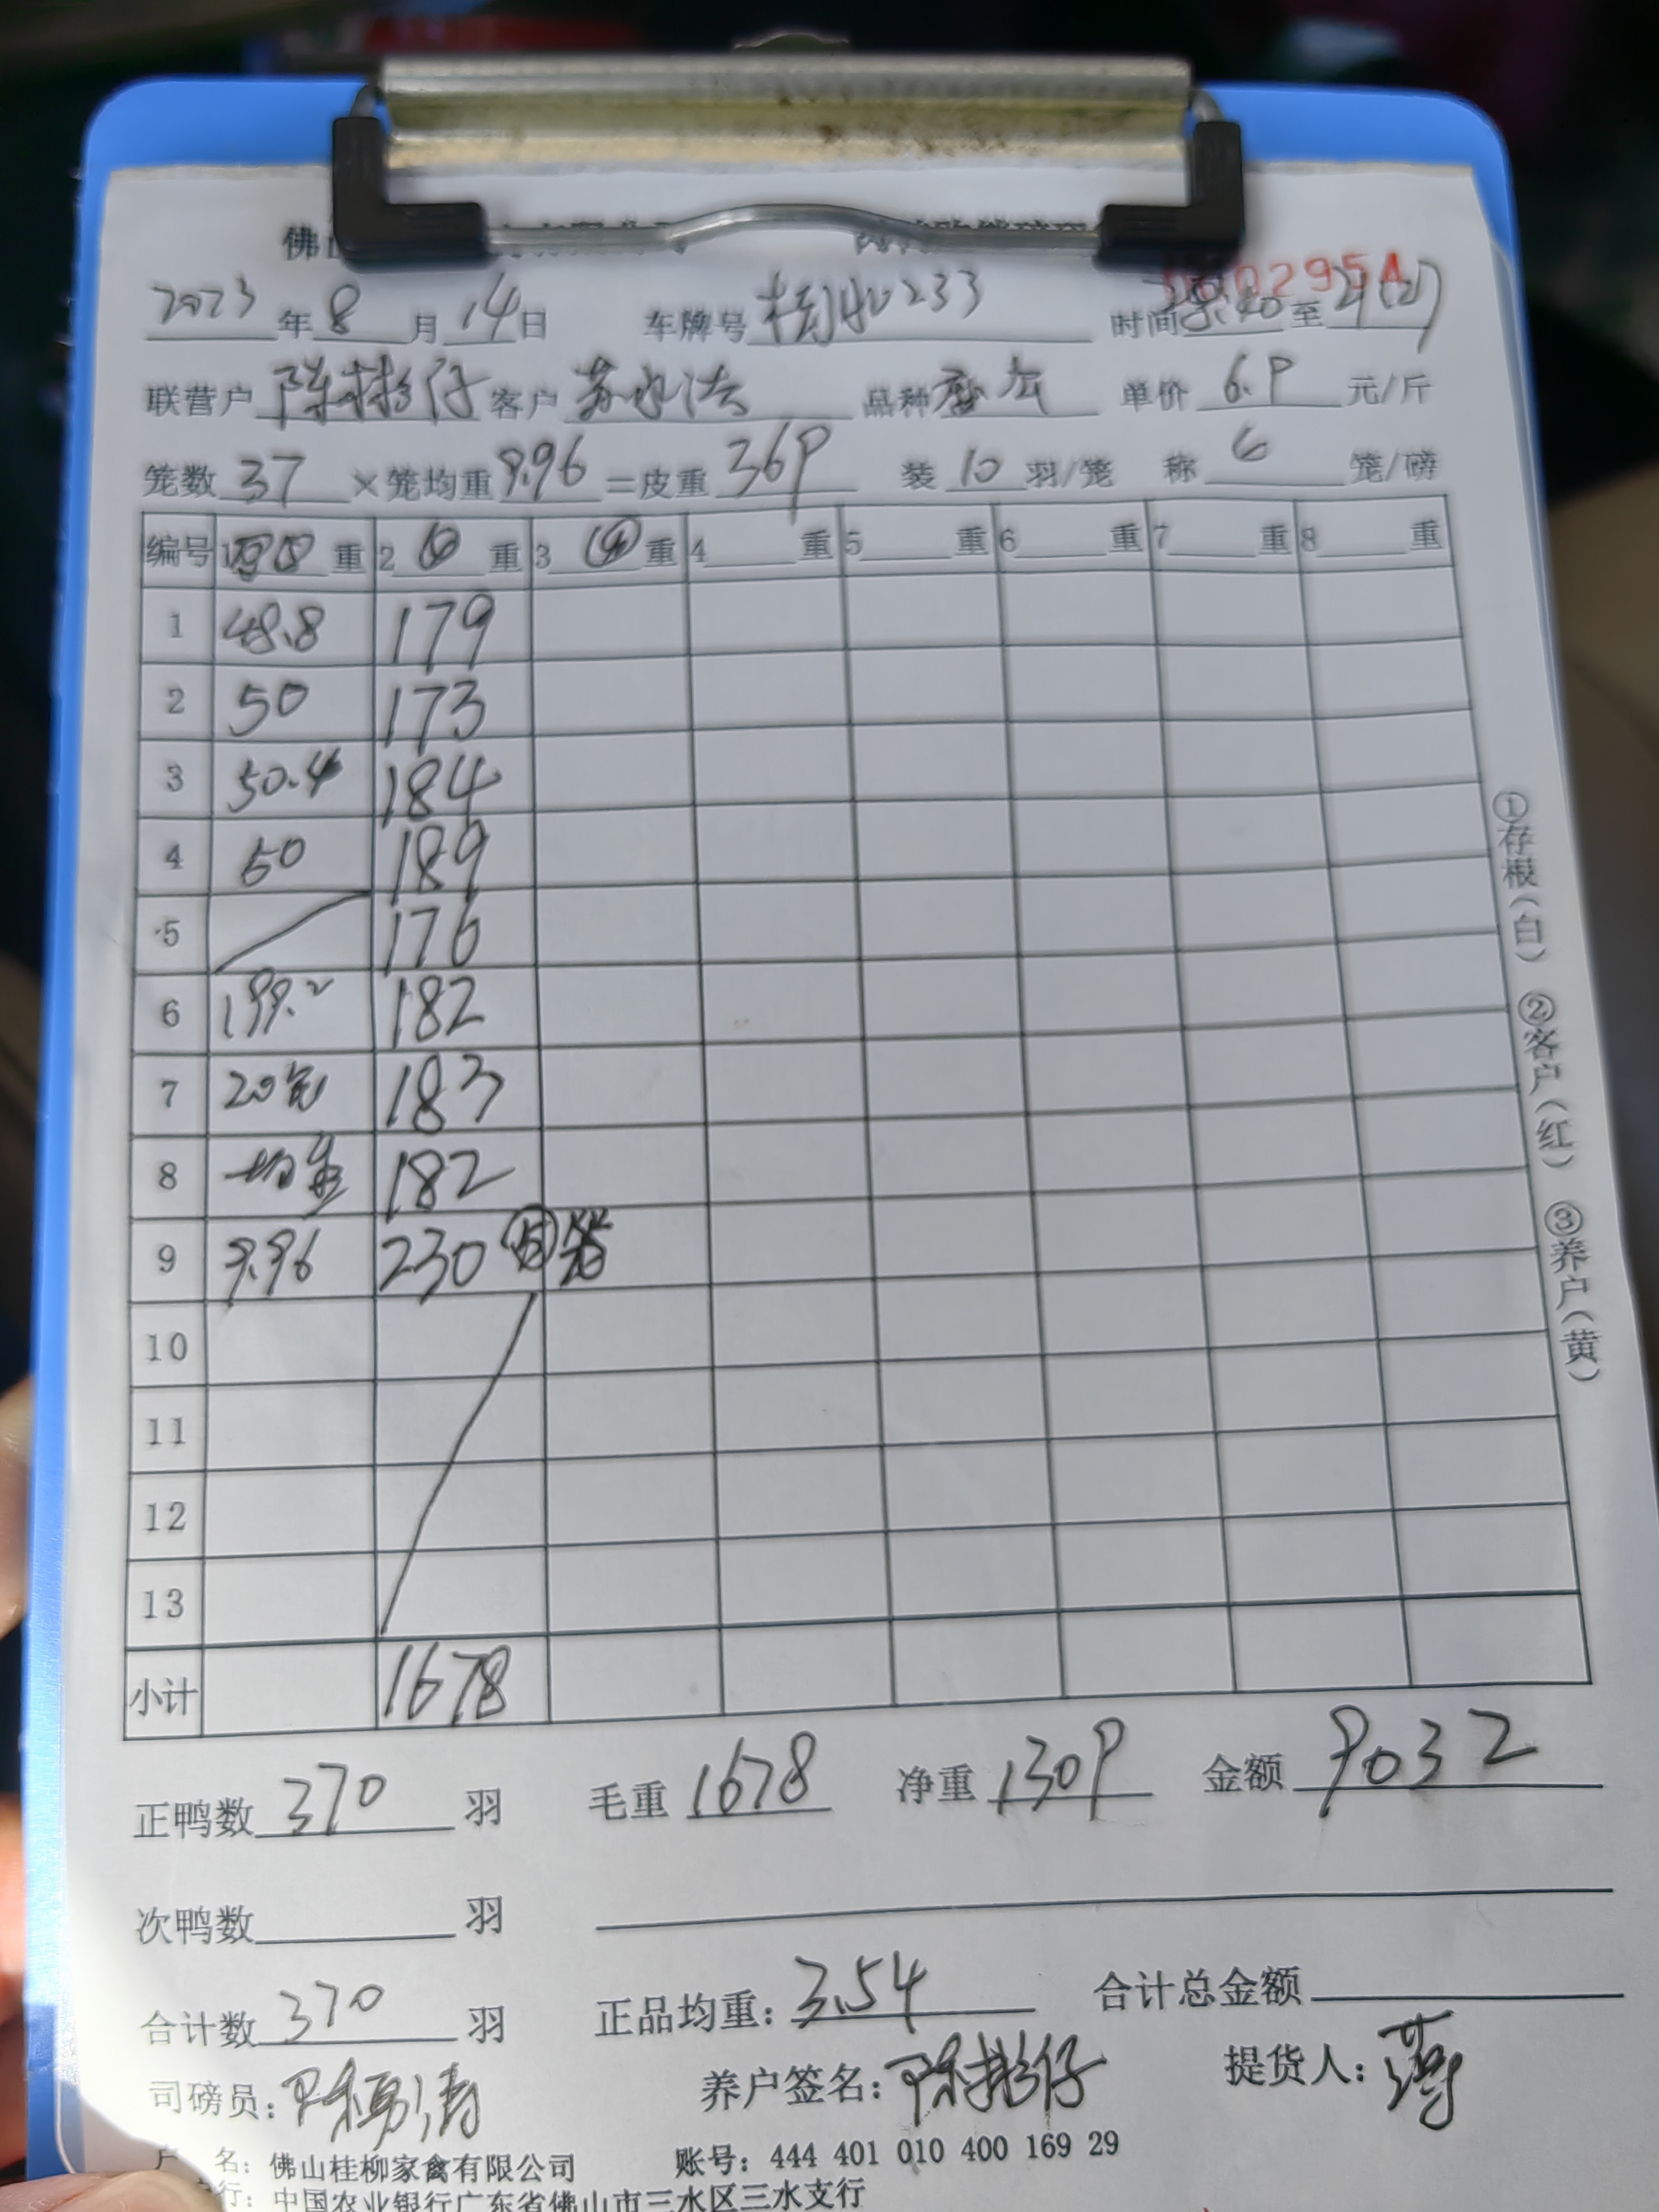 佛山
002954
2023年8月14日 车牌号 时间 至
联营户 陈 仔 客户 苏 法 品种 单价 6.9 元/斤
笼数 37 ×笼均重 9.96 =皮重 369 装 10 羽/笼 称 笼/磅
编号 1 重 2 重 3 ④ 重 4 重 5 重 6 重 7 重 8 重
1 48.8 179
2 50 173
3 50.4 184
4 50 189
5 176
6 199.2 182
7 20笼 183
8 均重 182
9 9.96 230 ⑤笼
10
11
12
13
小计 1678
正鸭数 370 羽 毛重 1678 净重 1309 金额 9032
次鸭数 羽
合计数 370 羽 正品均重: 3.54 合计总金额
司磅员: 陈勇清 养户签名: 陈 仔 提货人:
户 名: 佛山桂柳家禽有限公司 账号: 444 401 010 400 169 29
行: 中国农业银行广东省佛山市三水区三水支行
①存根(白) ②客户(红) ③养户(黄)